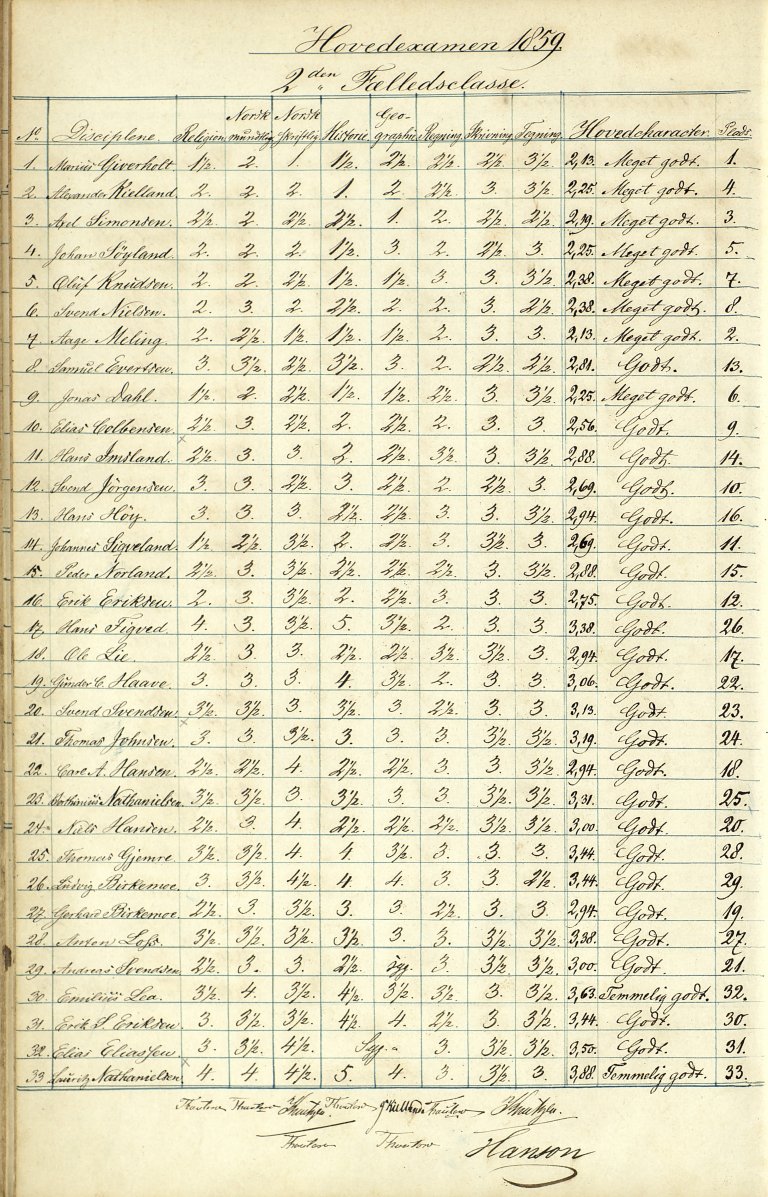 Hovedexamen 1859
2den Fælledsclasse.
No. Disciplene Religion Norsk mundtlig Norsk skriftlig Historie Geographie Regning Skrivning Tegning Hovedcharacter. Plads.
1. Marius Giverholt. 1½ 2. 1. 1½. 2½ 2½. 2½ 3½ 2,13. Meget godt. 1.
2. Alexander Kielland. 2. 2. 2. 1. 2. 2½. 3 3½ 2,25. Meget godt. 4.
3. Axel Simonsen. 2½ 2 2½. 2½. 1. 2. 2½. 2½. 2,19. Meget godt. 3.
4. Johan Söyland. 2. 2. 2. 1½ 3. 2. 2½ 3. 2,25. Meget godt. 5.
5. Oluf Knudsen. 2. 2. 2½ 1½. 1½. 3. 3. 3½. 2,38. Meget godt. 7.
6. Svend Nielsen. 2. 3. 2. 2½. 2. 2. 3. 2½. 2,38. Meget godt. 8.
7. Aage Meling. 2. 2½. 1½. 1½. 1½. 2. 3. 3. 2,13. Meget godt. 2.
8. Samuel Evertsen. 3. 3½. 2½. 3½. 3. 2. 2½. 2½. 2,81. Godt. 13.
9. Jonas Dahl. 1½. 2. 2½. 1½. 1½. 2½. 3. 3½ 2,25. Meget godt. 6.
10. Elias Colbensen. 2½ 3. 2½. 2. 2½. 2. 3. 3. 2,56. Godt. 9.
11. Hans Imsland. 2½ 3. 3. 2. 2½. 3½ 3. 3½. 2,88. Godt. 14.
12. Svend Jörgensen. 3. 3. 2½. 3. 2. 2. 2½. 3. 2,69. Godt. 10.
13. Hans Höy. 3. 3. 3. 2½. 2½. 3. 3. 3½. 2,94. Godt. 16.
14. Johannes Sigveland. 1½ 2½. 3½ 2. 2½ 3. 3½ 3. 2,69. Godt. 11.
15. Peder Norland. 2½. 3. 3½. 2½. 2½. 2½. 3. 3½. 2,88. Godt. 15.
16. Erik Eriksen. 2. 3. 3½. 2. 2½. 3. 3. 3. 2,75. Godt. 12.
17. Hans Tigved. 4 3. 3½. 5. 3½. 2. 3. 3. 3,38. Godt. 26.
18. Ole Lie. 2½. 3 3. 2½. 2½. 3½. 3½. 3. 2,94. Godt. 17.
19. Gunder C. Haave. 3. 3. 3. 4. 3½. 2. 3. 3. 3,06. Godt. 22.
20. Svend Svendsen. 3½ 3½. 3. 3½. 3. 2½. 3. 3. 3,13. Godt. 23.
21. Thomas Johnsen. 3. 3. 3½. 3. 3. 3. 3½ 3½. 3,19. Godt. 24.
22. Carl A. Hansen. 2½. 2½. 4. 2½. 2½. 3. 3. 3½ 2,94. Godt. 18.
23. Nathanielsen. 3½. 3½. 3. 3½. 3. 3. 3½. 3½. 3,31. Godt. 25.
24. Niels Hansen. 2½. 3. 4. 2½. 2½. 2½. 3½. 3½. 3,00. Godt. 20.
25. Thomas Gjemre. 3½. 3½. 4. 4. 3½. 3. 3. 3. 3,44. Godt. 28.
26. Ludvig Birkemoe. 3. 3½. 4½. 4. 4. 3. 3. 2½. 3,44. Godt. 29.
27. Gerhard Birkemoe. 2½. 3. 3½. 3. 3. 2½. 3. 3. 2,94. Godt. 19.
28. Anton Loss. 3½. 3½. 3½. 3½. 3. 3. 3½. 3½. 3,38. Godt. 27.
29. Andreas Svendsen. 2½. 3. 3. 2½. syg. 3. 3½. 3½. 3,00. Godt. 21.
30. Emilius Lea. 3½. 4. 3½. 4½. 3½. 3½. 3. 3½. 3,63. Temmelig godt. 32.
31. Erik S. Eriksen. 3. 3½. 3½. 4½. 4. 2½. 3. 3½. 3,44. Godt. 30.
32. Elias Eliassen. 3. 3½. 4½. Syg. 3. 3½. 3½. 3,50. Godt. 31.
33 Lauritz Nathanielsen. 4. 4. 4½. 5. 4. 3. 3½. 3. 3,88. Temmelig godt. 33.
Hanson